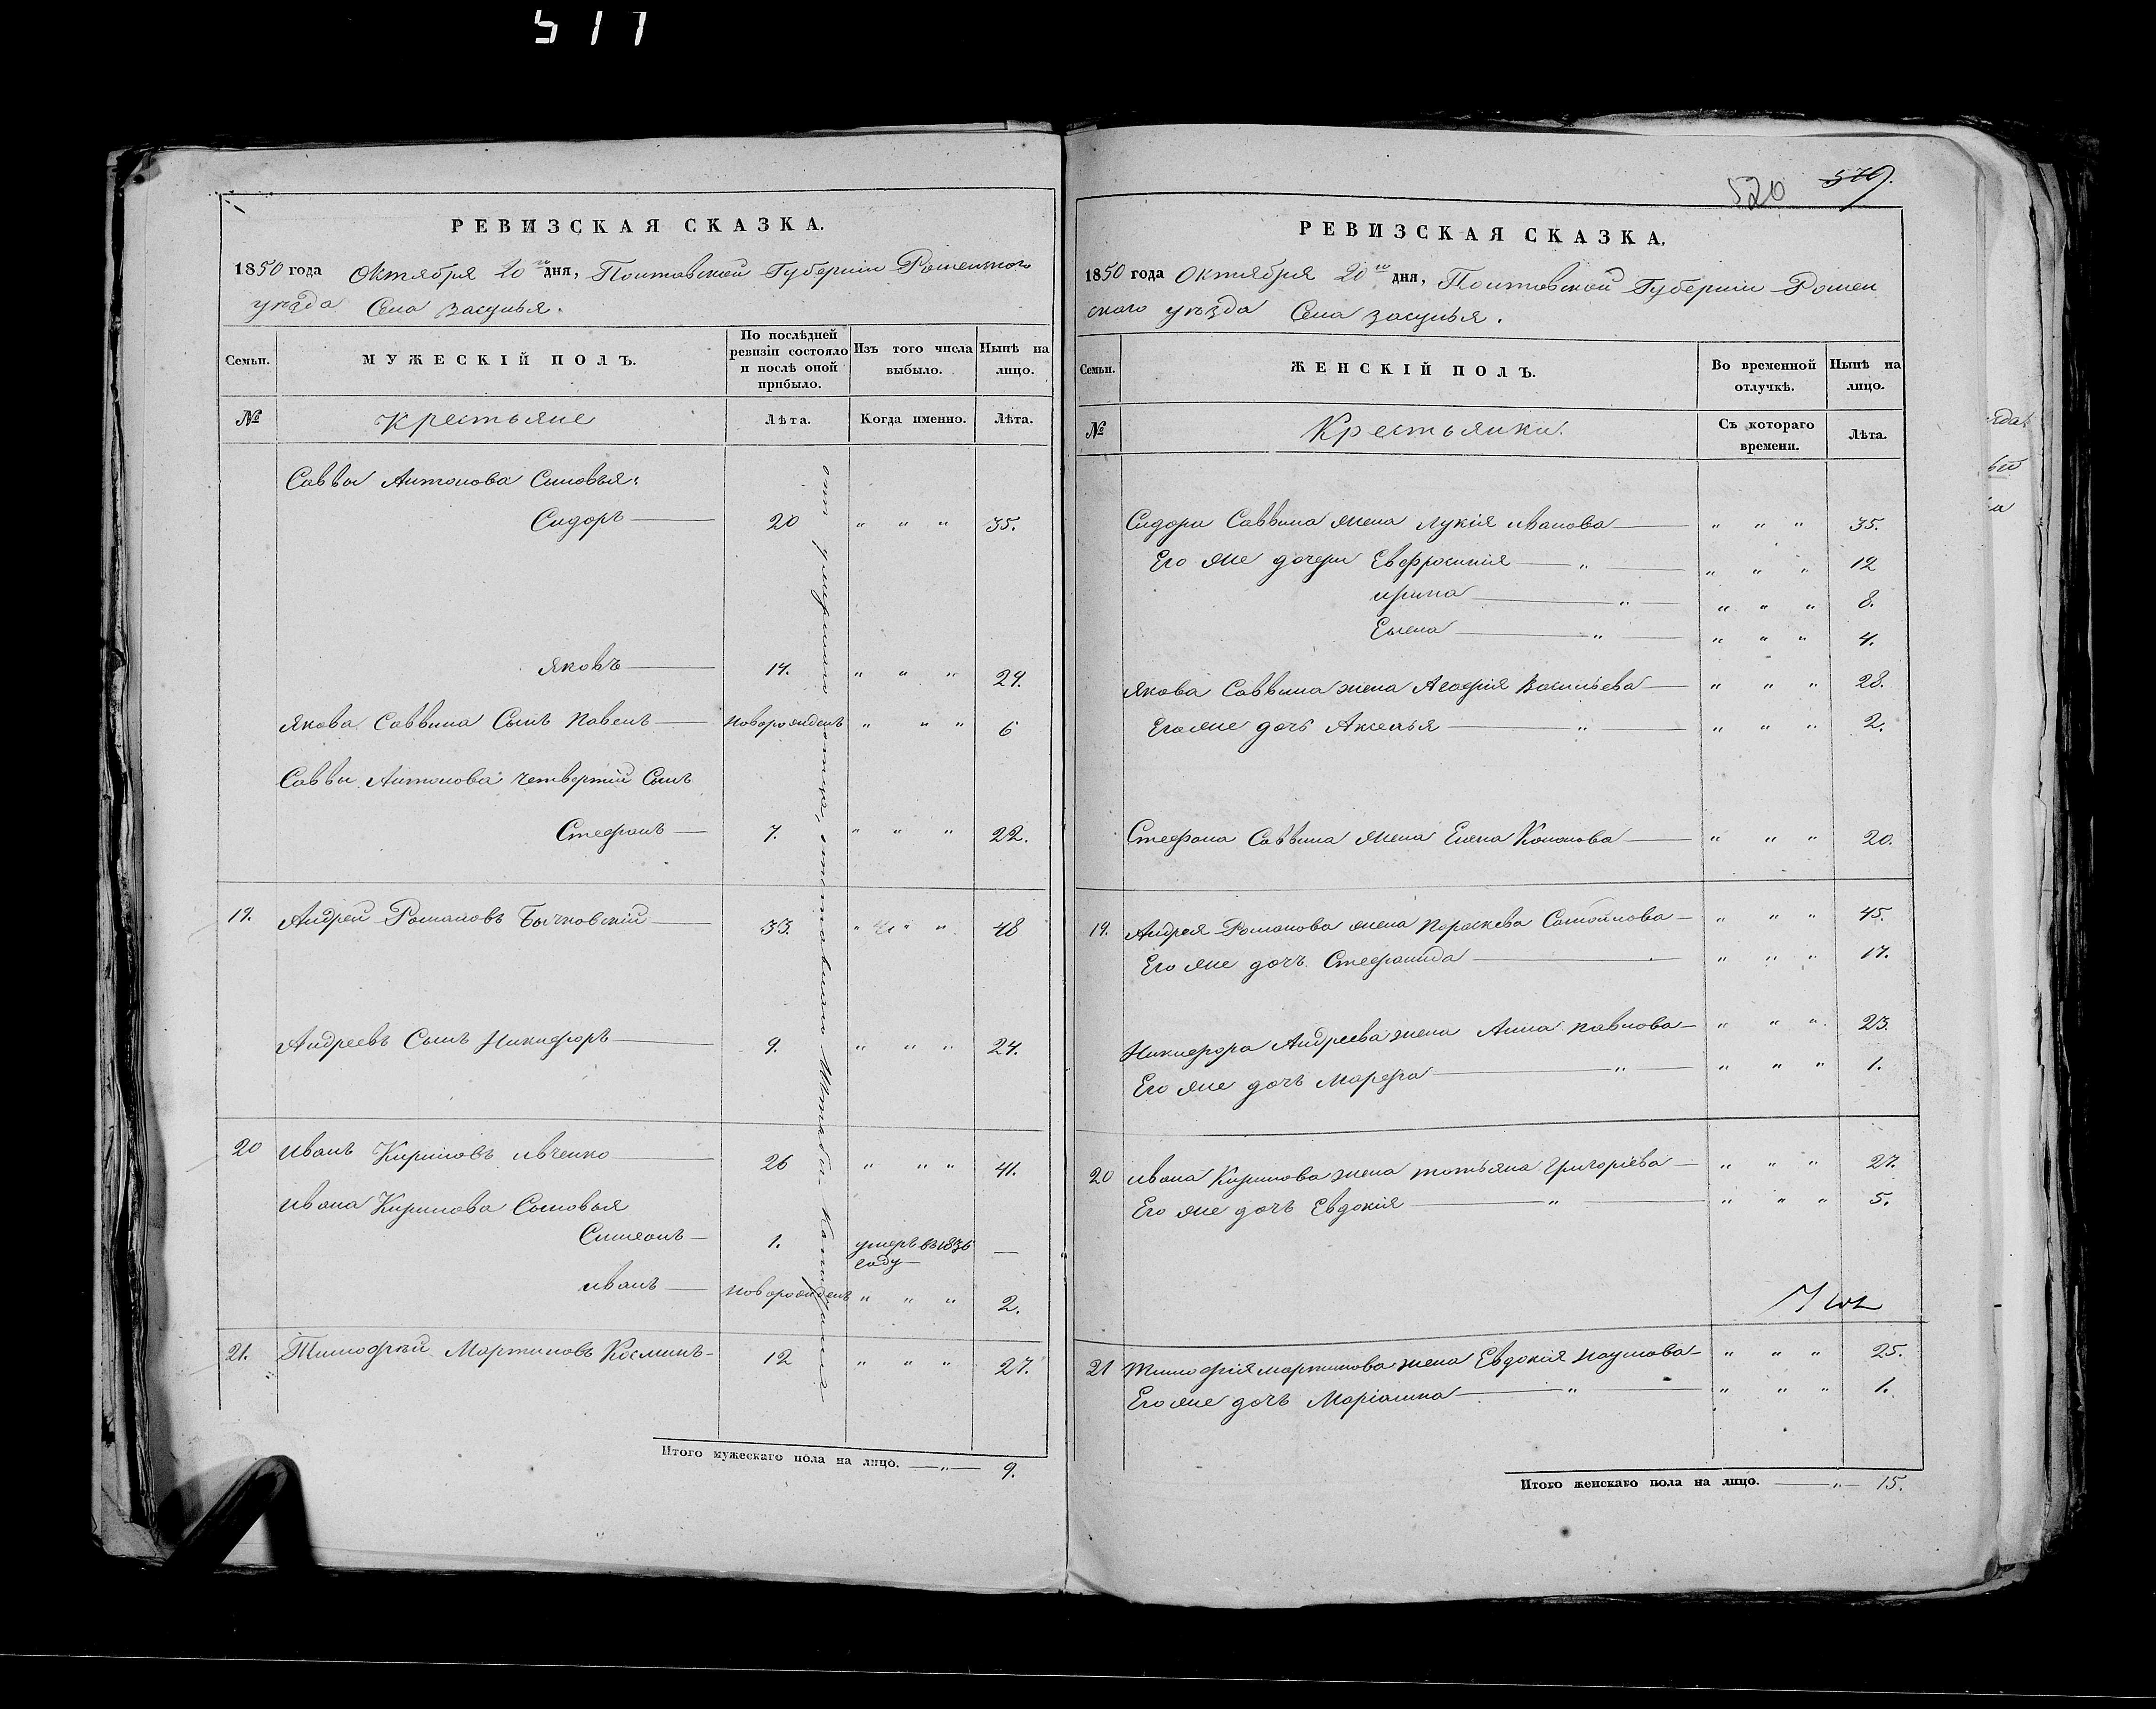 517
РЕВИЗСКАЯ СКАЗКА.
1850 года Октября 20го дня, Полтавской Губерніи Роменского
уѣзда Села засулья.
Семьи.
МУЖЕСКІЙ ПОЛЪ.
По послѣдней ревизіи состояло и послѣ оной прибыло.
Изъ того числа выбыло.
Нынѣ на лицо.
№ Крестьяне Лѣта. Когда именно. Лѣта.
Саввы Антонова Сыновья:
Сидоръ 20 " " " 35.
Яковъ 14. " " " 29.
Якова Саввина Сынъ Павелъ новорожденъ " " " 6
Саввы Антонова четвертій Сынъ
Стефанъ 7. " " " 22.
19. Андрей Романовъ Бычковскій 33. " " " 48
Андреевъ Сынъ Никифоръ 9. " " " 24.
20 Иванъ Кириловъ Ивченко 26 " " " 41.
Ивана Кирилова Сыновья
Симеонъ 1. умеръ въ 1836 году —
Иванъ новорожденъ " " " 2.
21. Тимофѣй Мартиновъ Косминъ 12 " " " 27.
Итого мужескаго пола на лицо. — " — 9.
520 579.
РЕВИЗСКАЯ СКАЗКА.
1850 года Октября 20го дня, Полтавской Губерніи Ромен
ского уѣзда Села засулья.
Семьи.
ЖЕНСКІЙ ПОЛЪ.
Во временной отлучкѣ.
Нынѣ на лицо.
№ Крестьянки. Съ котораго времени. Лѣта.
Сидора Саввина жена Лукія Иванова " " " 35.
Его же дочери Евфросинія " " " 12
Ирина " " " 8.
Елена " " " 4.
Якова Саввина жена Агафія Васильева " " " 28.
Его же дочь Аксинья " " " 2.
Стефана Саввина жена Елена Кононова " " " 20.
19. Андрея Романова жена Параскева Самойлова " " " 45.
Его же дочь Стефанида " " " 17.
Никифора Андреева жена Анна Павлова " " " 23.
Его же дочь Марфа " " " 1.
20 Ивана Кирилова жена татьяна Григоріева " " " 27.
Его же дочь Евдокія " " " 5.
21 Тимофія мартинова жена Евдокія Наумова " " " 25.
Его же дочь Маріанна " " " 1.
Итого женскаго пола на лицо. — " — 15.